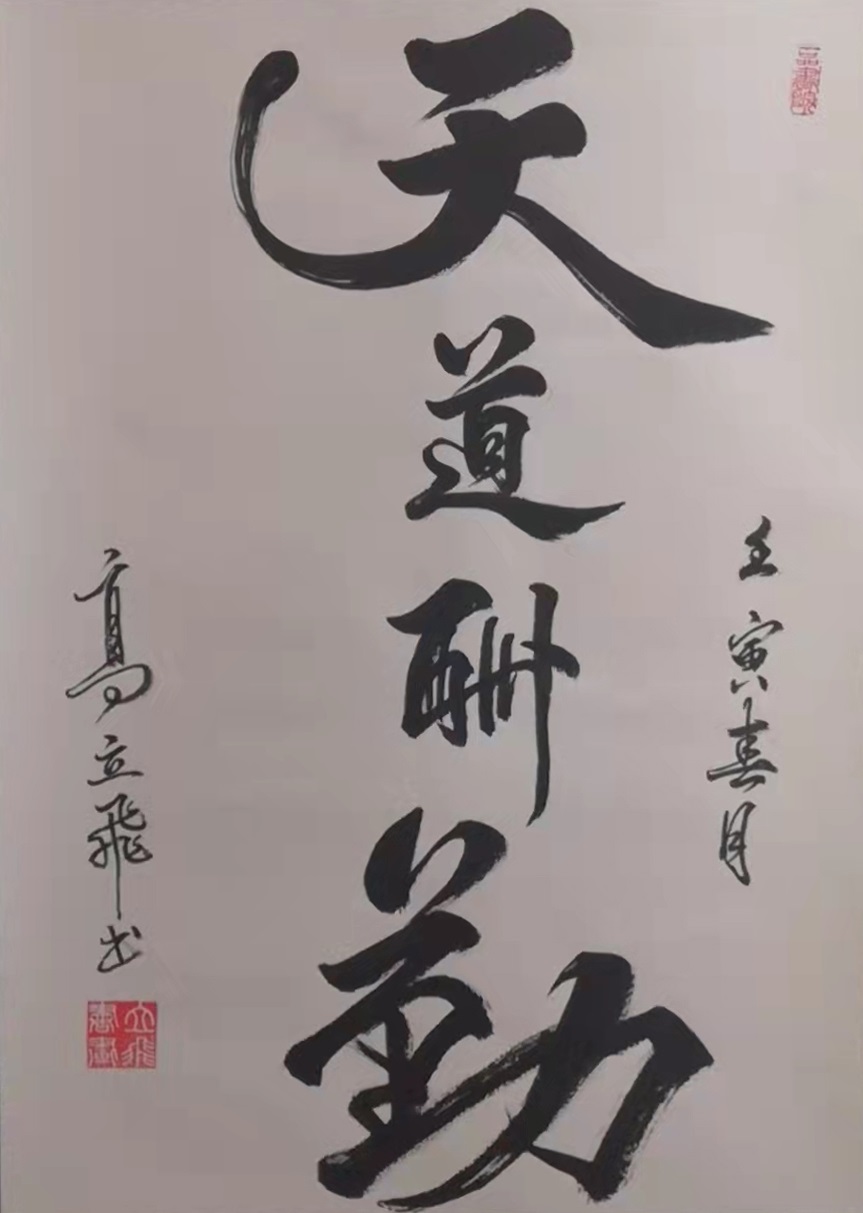 壬寅春月
天道酬勤
高立飛书
立飛書畫